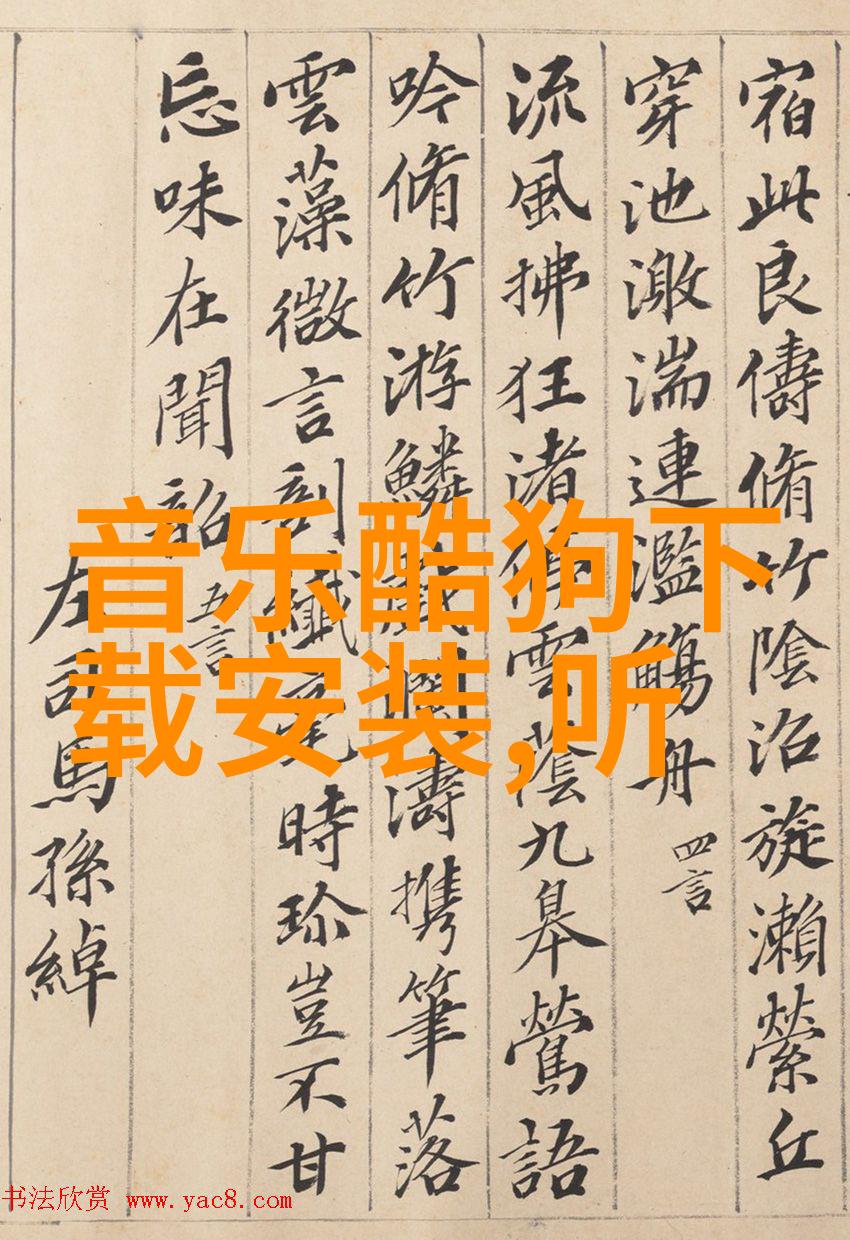 宿此良儔脩竹陰沼旋瀨縈丘
穿池激湍連濫觴舟 四言
流風拂狂渚停雲蔭九皋鶯語
吟脩竹游鱗戲瀾濤携筆落
雲藻微言剖纖毫時珍豈不甘
忘味在聞韶 五言
左司馬孫綽
音乐酷狗下
载安装,听
书法欣赏 www.yac8.com